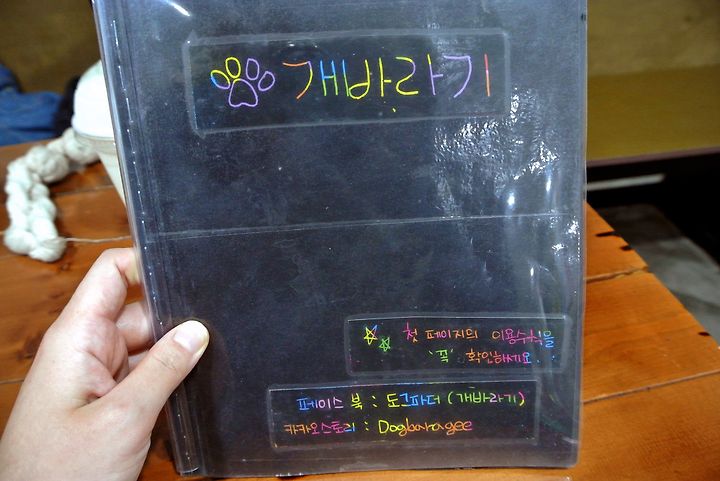 개바라기
첫 페이지의 이용수칙을
'꼭' 확인하세요.
페이스 북 : 도그파더 (개바라기)
카카오스토리 : Dogbaragee